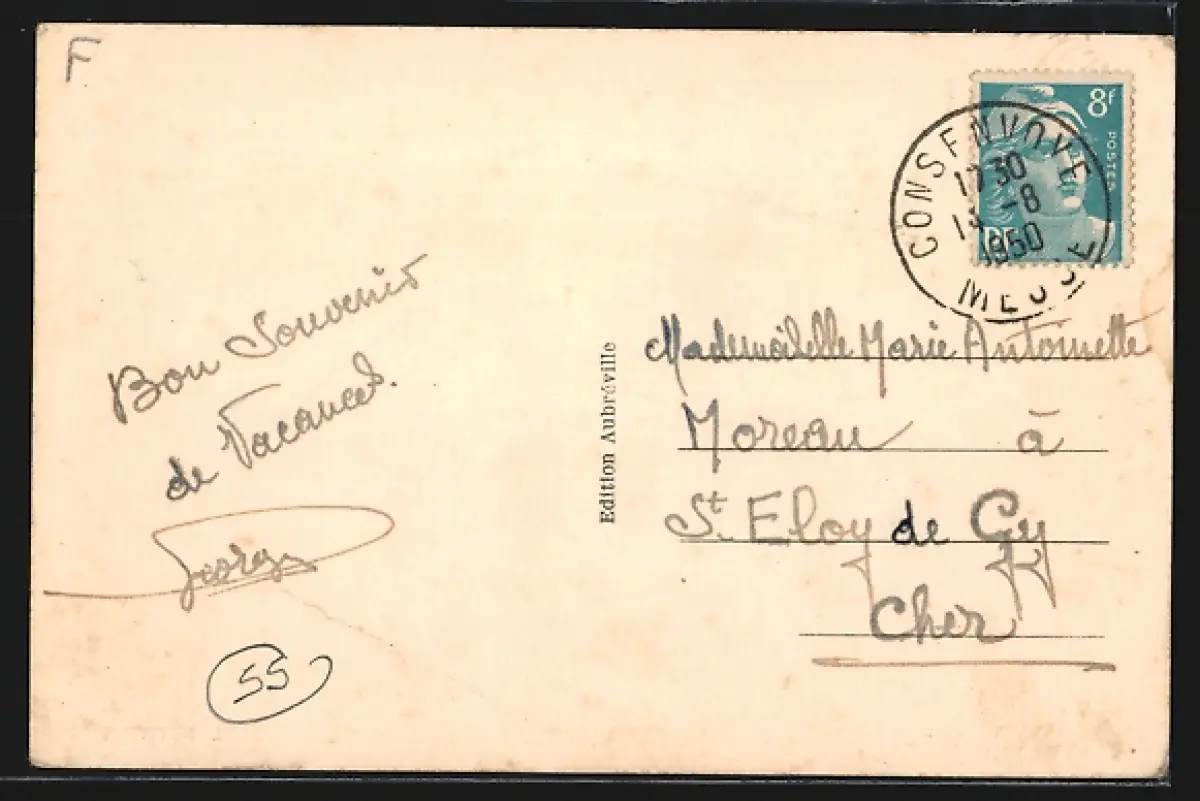 F
8F
POSTES
RF
CONSENVOYE
17 30
13 -8
1950
MEUSE
Bon Souvenir
de Vacances.
Georges
55
Edition Aubréville
Mademoiselle Marie Antoinette
Moreau à
St. Eloy de Gy
Cher